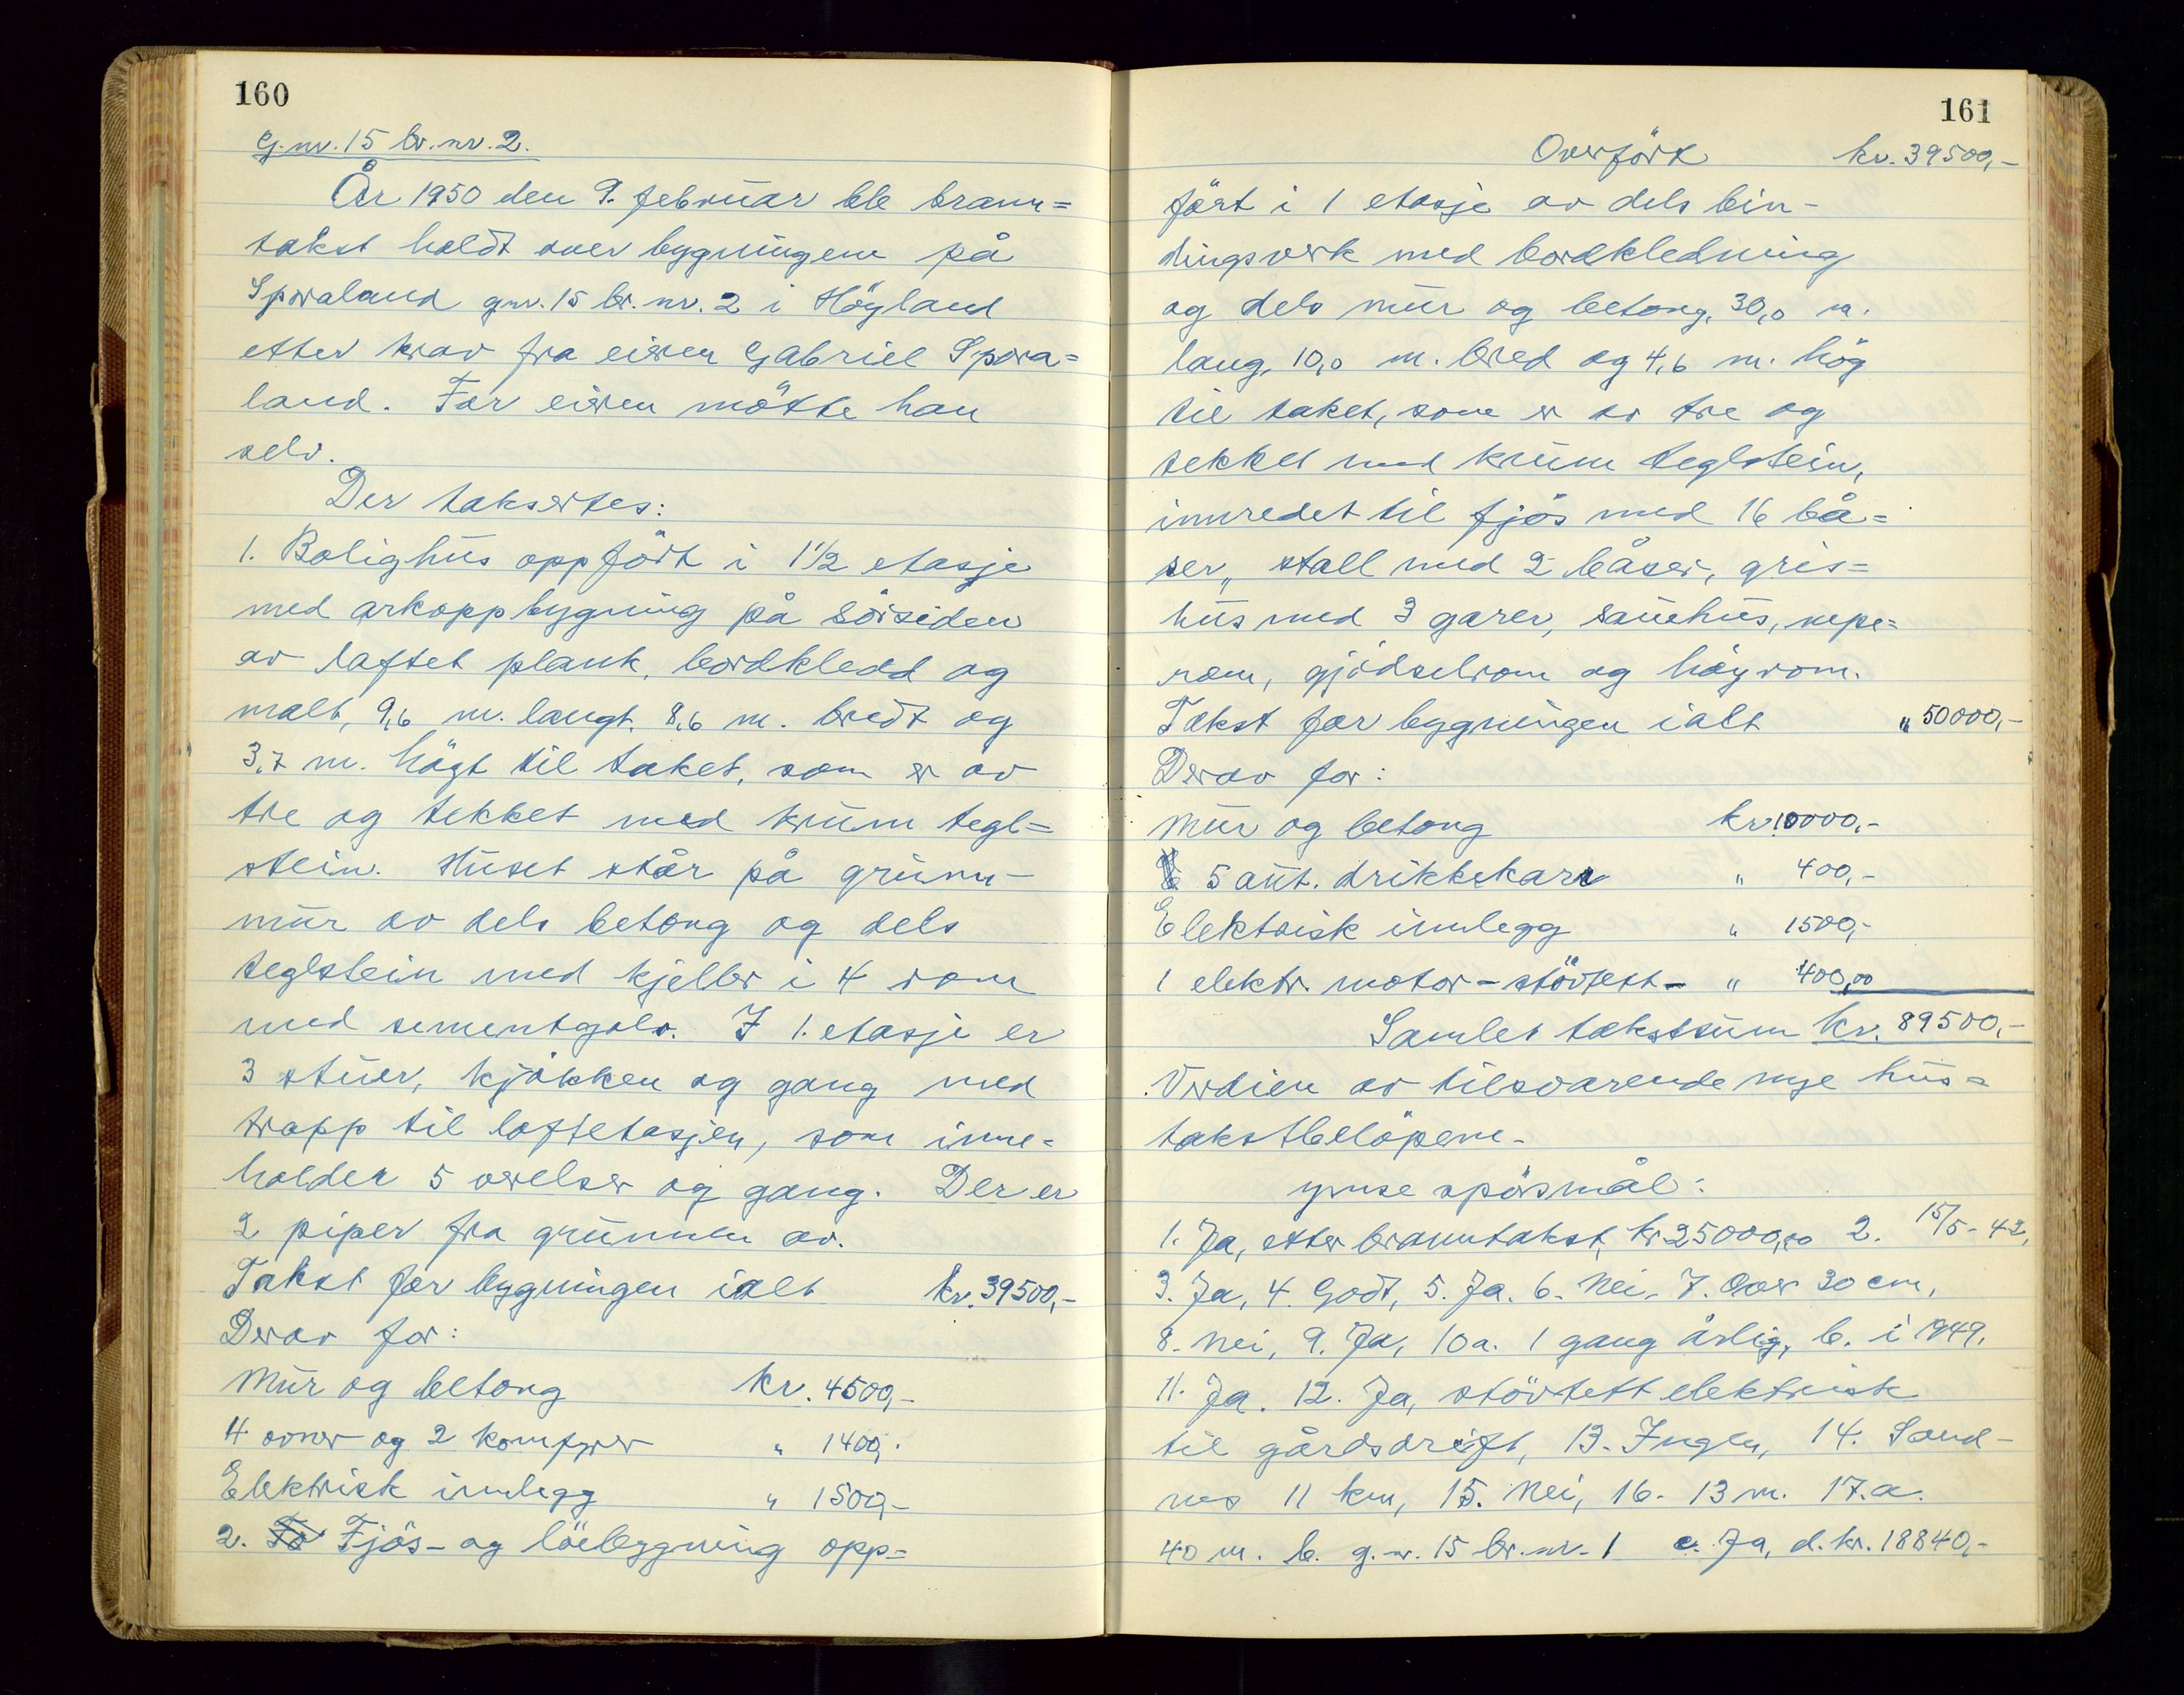 160
G.nr. 15 br.nr. 2.
År 1950 den 9. februar ble brann=
takst holdt over bygningene på
Sporaland gnr. 15 br.nr. 2 i Höyland
etter krav fra eieren Gabriel Spora=
land. For eieren mötte han
selv.
Der taksertes:
1. Bolighus oppfört i 1 1/2 etasje
med arkoppbygning på sörsiden
av laftet plank, bordkledd og
malt, 9,6 m. langt. 8,6 m. bredt og
3,7 m. högt til taket, som er av
tre og tekket med krum tegl=
stein. Huset står på grunn-
mur av dels betong og dels
teglstein med kjeller i 4 rom
med sementgolv. I 1. etasje er
3 stuer, kjökken og gang med
trapp til loftetasjen, som inne=
holder 5 værelser og gang. Der er
2 piper fra grunnen av.
Takst for bygningen ialt kr. 39500,-
Derav for:
Mur og betong kr. 4500,-
4 ovner og 2 komfyrer " 1400,-
Elektrisk innlegg " 1500,-
2. Fö Fjös- og löebygning opp=
161
Overfört kr. 39500,-
fört i 1 etasje av dels bin-
dingsverk med bordkledning
og dels mur og betong, 30,0 m.
lang, 10,0 m. bred og 4,6 m. hög
til taket, som er av tre og
tekket med krum teglstein,
innredet til fjös med 16 bå=
ser, stall med 2 båser, gris=
hus med 3 garer, sauehus, nepe=
rom, gjödselrom og höyrom.
Takst for bygningen ialt " 50000,-
Derav for:
Mur og betong kr. 10000,-
5 aut. drikkekar " 400,-
Elektrisk innlegg " 1500,-
1 elektr. motor-stövtett- " 400,00
Samlet takstsum kr. 89500,-
Verdien av tilsvarende nye hus=
takstbelöpene-
ymse spörsmål:
1. Ja, etter branntakst, kr 25000,00 2. 15/5-42,
3. Ja, 4. Godt, 5. Ja. 6. Nei, 7. Over 30 cm,
8. Nei, 9. Ja, 10a. 1 gang årlig, b. i 1949.
11. Ja. 12. Ja, stövtett elektrisk
til gårdsdrift, 13. Ingen, 14. Sand-
nes 11 km, 15. Nei, 16. 13 m. 17.a.
40 m. b. g.nr. 15 br.nr. 1 c. Ja, d. kr. 18840,-